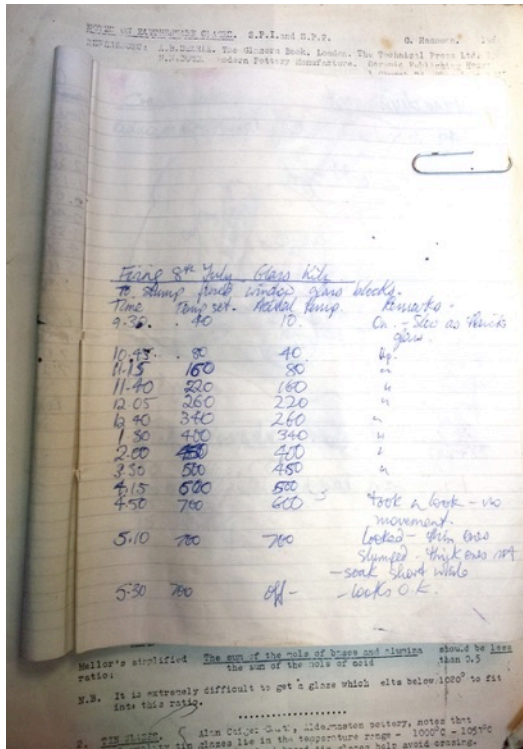 NOTES ON EARTHENWARE GLAZES. S.P.I. and S.P.P. G.
A.B. The Glazers Book. London. The Technical Press Ltd.
Modern Pottery Manufacture.
Firing 8th July Glass Kiln
To slump fused window glass blocks.
Time Temp set. Actual Temp. Remarks -
9.30. 40 10. On - Slow as thick
glass.
10.45. 80 40. Up.
11.15 160 80 "
11.40 220 160 "
12.05 260 220 "
12.40 340 260 "
1.30 400 340 "
2.00 450 400 "
3.30 500 450 "
4.15 600 500
4.50 700 600 took a look - no
movement.
5.10 700 700 Looked - thin ones
slumped - thick ones not
- soak short while
5.30 700 off - - looks O.K.
Mellor's simplified The sum of the mols of bases and alumina should be less
ratio: the sum of the mols of acid than 0.5
N.B. It is extremely difficult to get a glaze which elts below 1020° to fit
into this ratio.
2. TIN GLAZES. Alan Caiger-Smith, Aldermaston pottery, notes that
glazes lie in the temperature range - 1000°C - 1057°C
help avoid crazing.